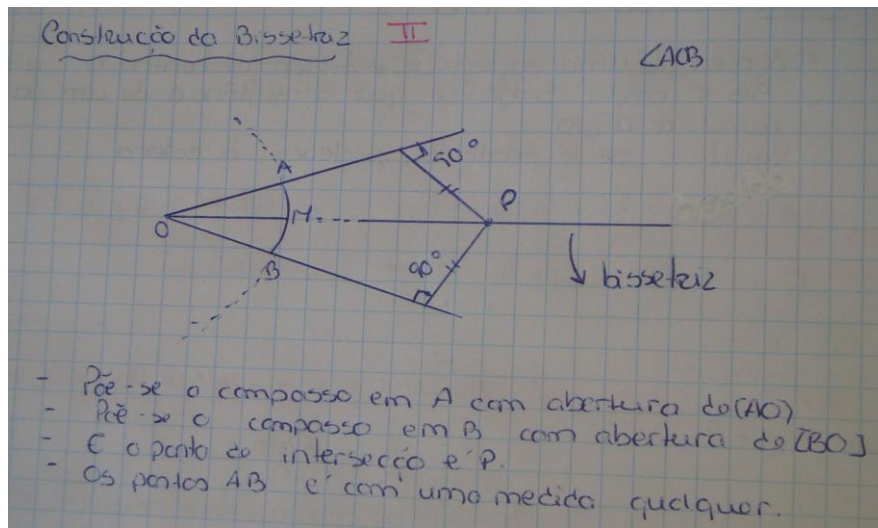 Construção da Bissetriz II
∠AOB
A
90°
P
M
O
B
90°
bissetriz
- Põe-se o compasso em A com abertura do (AO)
- Põe-se o compasso em B com abertura do [BO]
- E o ponto do intersecção é P.
- Os pontos AB é com uma medida qualquer.